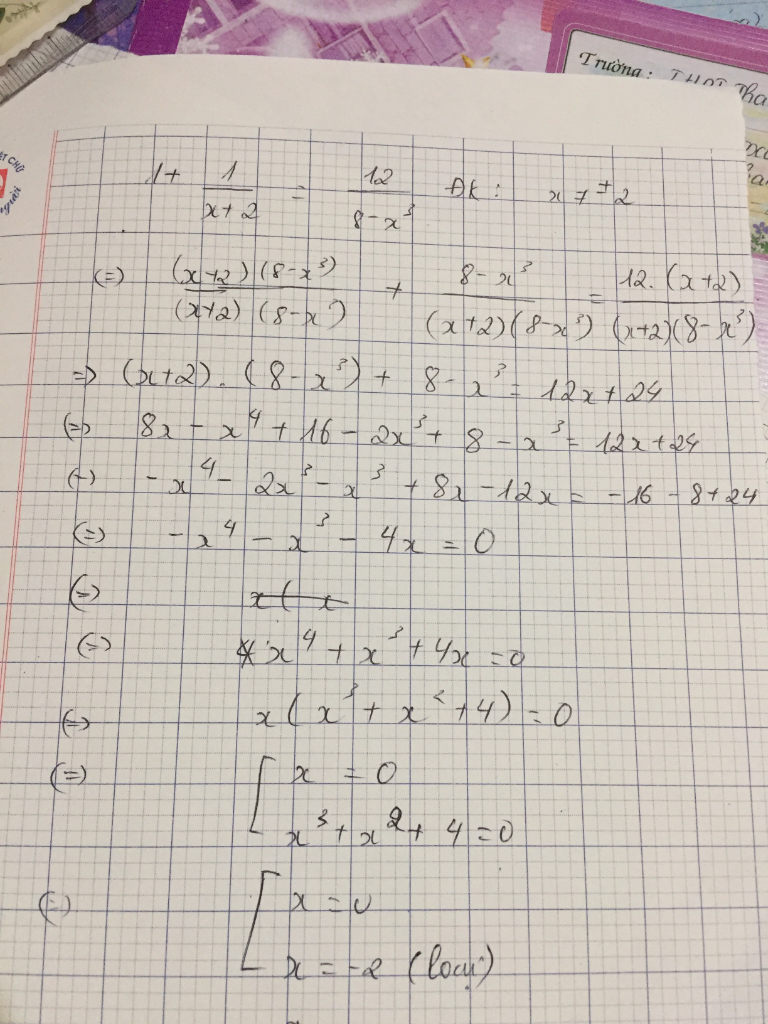 Trường: THPT Tha
1 + 1/(x+2) = 12/(8-x³) ĐK: x ≠ ±2
(=) (x+2)(8-x³)/(x+2)(8-x³) + 8-x³/(x+2)(8-x³) = 12.(x+2)/(x+2)(8-x³)
=> (x+2).(8-x³) + 8-x³ = 12x+24
(=) 8x - x⁴ + 16 - 2x³ + 8 - x³ = 12x+24
(=) -x⁴ - 2x³ - x³ + 8x - 12x = -16 - 8 + 24
(=) -x⁴ - x³ - 4x = 0
(=) x( x
(=) x⁴ + x³ + 4x = 0
(=) x(x³ + x² + 4) = 0
(=) [ x = 0
x³ + x² + 4 = 0
(=) [ x = 0
x = -2 (loại)